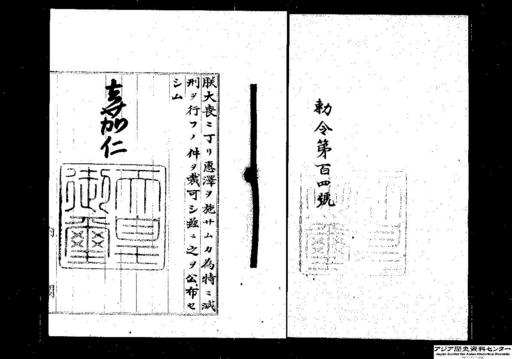 勅令第百四號
朕大喪ニ丁リ惠澤ヲ施サムカ為特ニ減
刑ヲ行フノ件ヲ裁可シ茲ニ之ヲ公布セ
シム
嘉仁
天皇
御璽
内閣
アジア歴史資料センター
Japan Center for Asian Historical Records